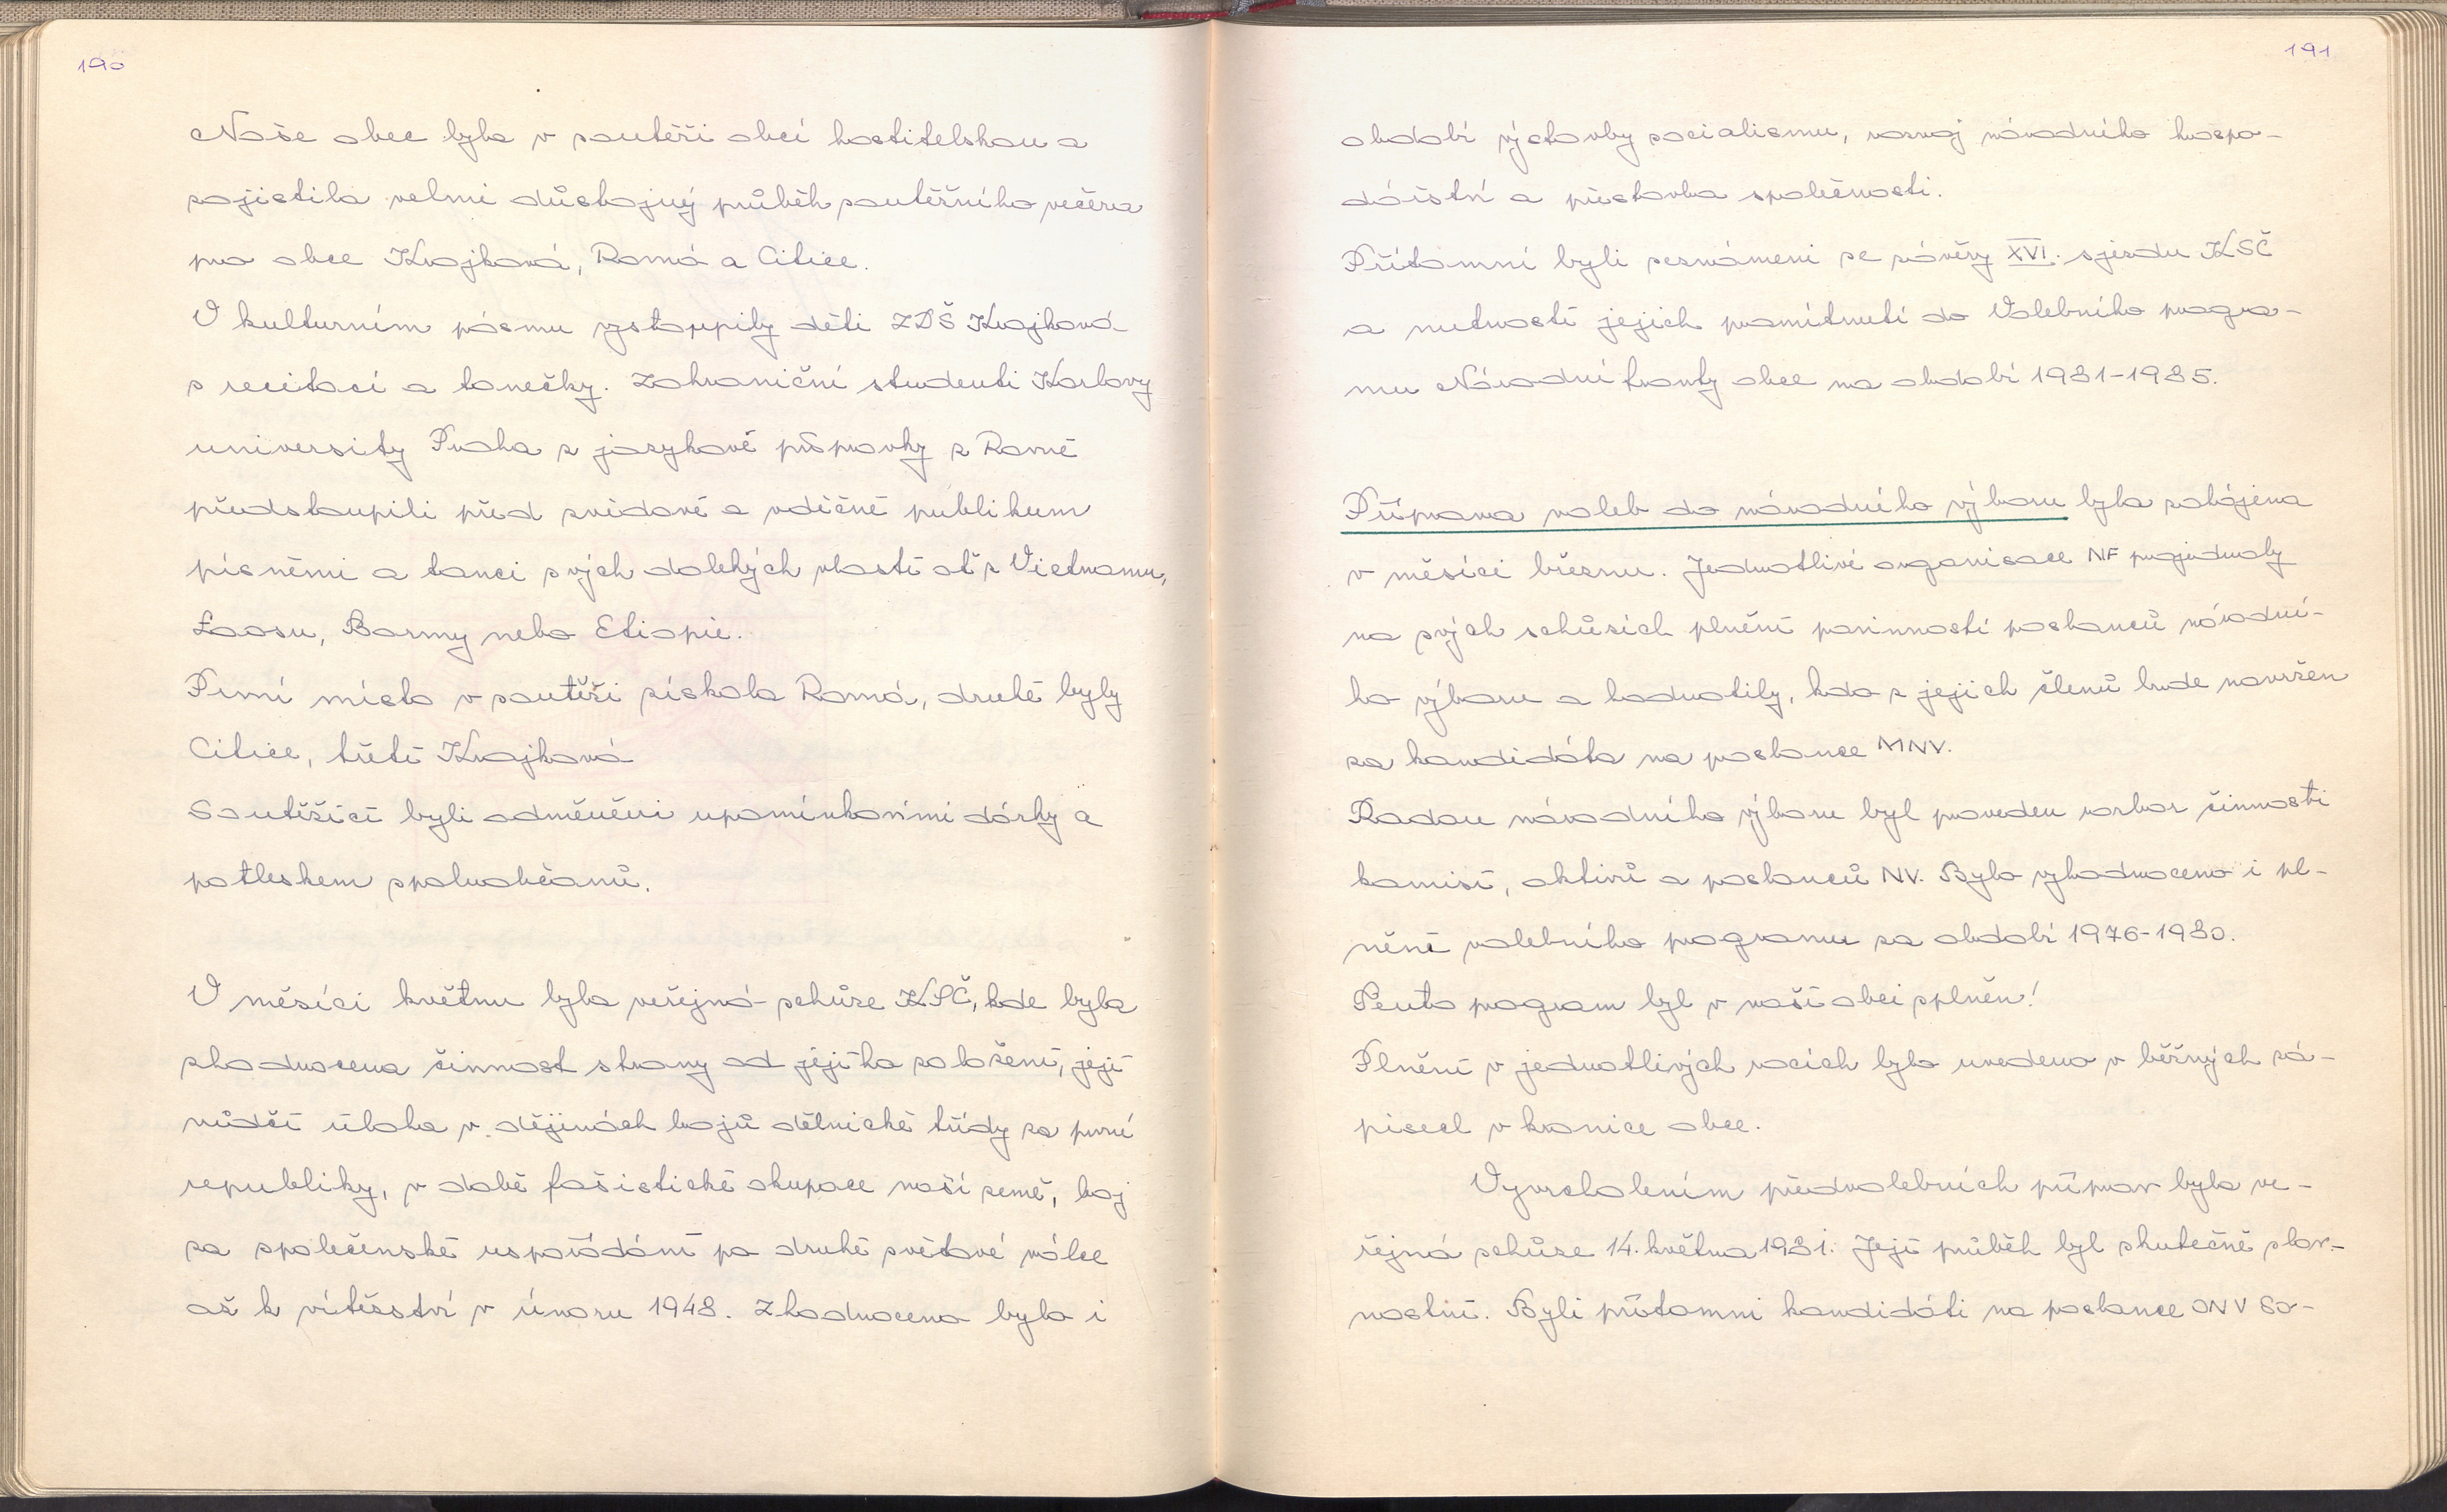 190
Naše obec byla v soutěži obcí hostitelskou a
zajistila velmi důstojný průběh soutěžního večera
pro obce Krajková, Rovná a Citice.
V kulturním pásmu vystoupily děti ZDŠ Krajková
s recitací a tanečky. Zahraniční studenti Karlovy
university Praha z jazykové přípravky z Rovné
předstoupili před zvědavé a vděčné publikum
písněmi a tanci svých dalekých vlastí ať z Vietnamu,
Laosu, Barmy nebo Etiopie.
První místo v soutěži získala Rovná, druhé byly
Citice, třetí Krajková
Soutěžící byli odměněni upomínkovími dárky a
potleskem spoluobčanů.
V měsíci květnu byla veřejná schůze KSČ, kde byla
zhodnocena činnost strany od jejího založení, její
vůdčí úloha v dějinách bojů dělnické třídy za první
republiky, v době fašistické okupace naší země, boj
za společenské uspořádání po druhé světové válce
až k vítězství v únoru 1948. Zhodnoceno bylo i
191
období výstavby socialismu, rozvoj národního hospo-
dářství a přestavba společnosti.
Přítomní byli seznámeni se závěry XVI. sjezdu KSČ
a nutností jejich promítnutí do Volebního progra-
mu Národní fronty obce na období 1981-1985.
Příprava voleb do národního výboru byla zahájena
v měsíci březnu. Jednotlivé organisace NF projednaly
na svých schůzích plnění povinností poslanců národní-
ho výboru a hodnotily, kdo z jejich členů bude navržen
za kandidáta na poslance MNV.
Radou národního výboru byl proveden rozbor činnosti
komisí, aktivů a poslanců NV. Bylo vyhodnoceno i pl-
nění volebního programu za období 1976-1980.
Tento program byl v naší obci splněn!
Plnění v jednotlivých rocích bylo uvedeno v běžných zá-
pisech v kronice obce.
Vyvrcholením předvolebních příprav byla ve-
řejná schůze 14. května 1981. Její průběh byl skutečně slav-
nostní. Byli přítomni kandidáti na poslance ONV So-